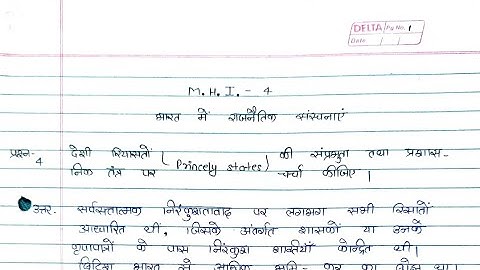 DELTA Pg No. 1
Date
M.H.I. - 4
भारत में राजनैतिक संरचनाएं
प्रश्न- देशी रियासतों (Princely states) की संप्रभुता तथा प्रशास-
4 निक तंत्र पर चर्चा कीजिए।
उत्तर. सर्वसत्तात्मक निरंकुशतावाद पर लगभग सभी रियासतें
आधारित थीं, जिसके अंतर्गत शासकों या उनके
कृपापात्रों के पास निरंकुश शक्तियां केन्द्रित थी।
ब्रिटिश भारत से अधिक भूमि- कर का बोझ था